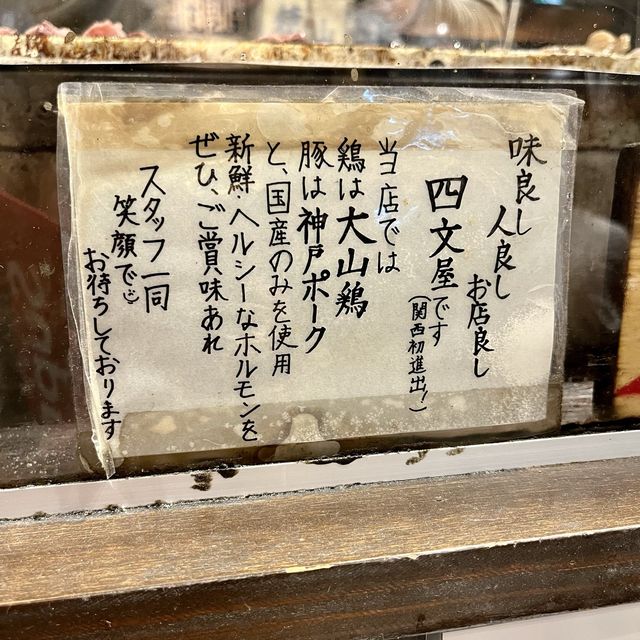 味良し
人良し
お店良し
四文屋です
(関西初進出！)
当店では
鶏は大山鶏
豚は神戸ポーク
と、国産のみを使用
新鮮・ヘルシーなホルモンを
ぜひ、ご賞味あれ
スタッフ一同
笑顔で
お待ちしております